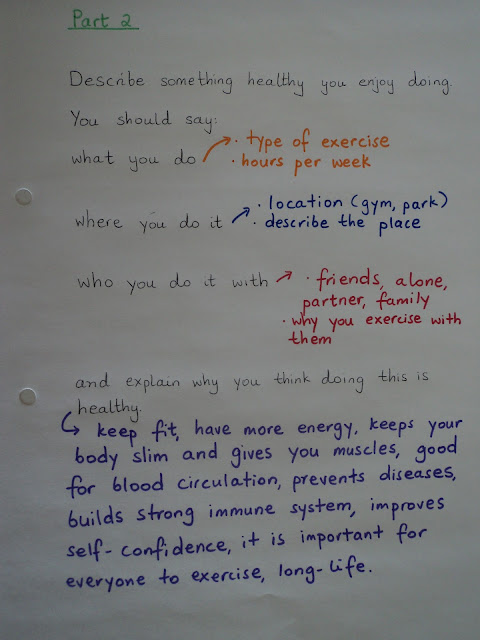 Part 2
Describe something healthy you enjoy doing.
You should say:
what you do
· type of exercise
· hours per week
where you do it
· location (gym, park)
· describe the place
who you do it with
· friends, alone,
partner, family
· why you exercise with
them
and explain why you think doing this is
healthy.
keep fit, have more energy, keeps your
body slim and gives you muscles, good
for blood circulation, prevents diseases,
builds strong immune system, improves
self-confidence, it is important for
everyone to exercise, long-life.